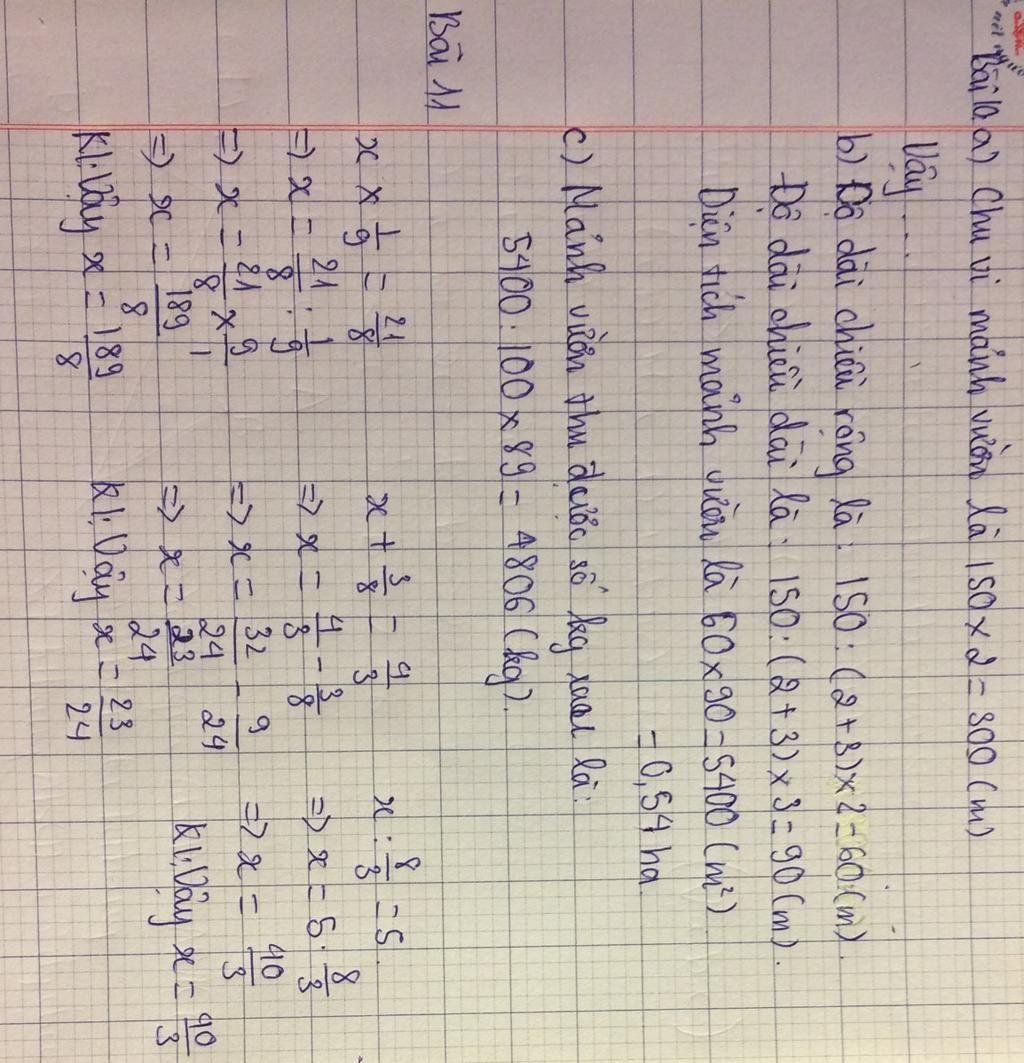 Bài 10 a) Chu vi mảnh vườn là 150 × 2 = 300 (m)
Vậy ...
b) Độ dài chiều rộng là: 150 : (2 + 3) × 2 = 60 (m).
Độ dài chiều dài là: 150 : (2 + 3) × 3 = 90 (m).
Diện tích mảnh vườn là 60 × 90 = 5400 (m²)
= 0,54 ha
c) Mảnh vườn thu được số kg rau là:
5400 : 100 × 89 = 4806 (kg).
Bài 11
x × 1/9 = 21/8
=> x = 21/8 : 1/9
=> x = 21/8 × 9/1
=> x = 189/8
Kl: Vậy x = 189/8
x + 3/8 = 4/3
=> x = 4/3 - 3/8
=> x = 32/24 - 9/24
=> x = 23/24
Kl: Vậy x = 23/24
x : 8/3 = 5
=> x = 5 . 8/3
=> x = 40/3
Kl: Vậy x = 40/3